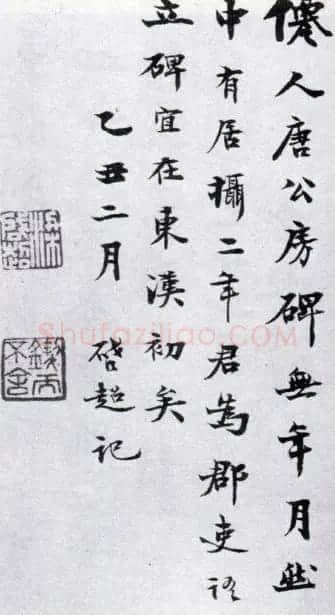 僊人唐公房碑無年月然
中有居攝二年君為郡吏語
立碑宜在東漢初矣
乙丑二月 啓超記
Shufaziliao.com
鍥而不舍